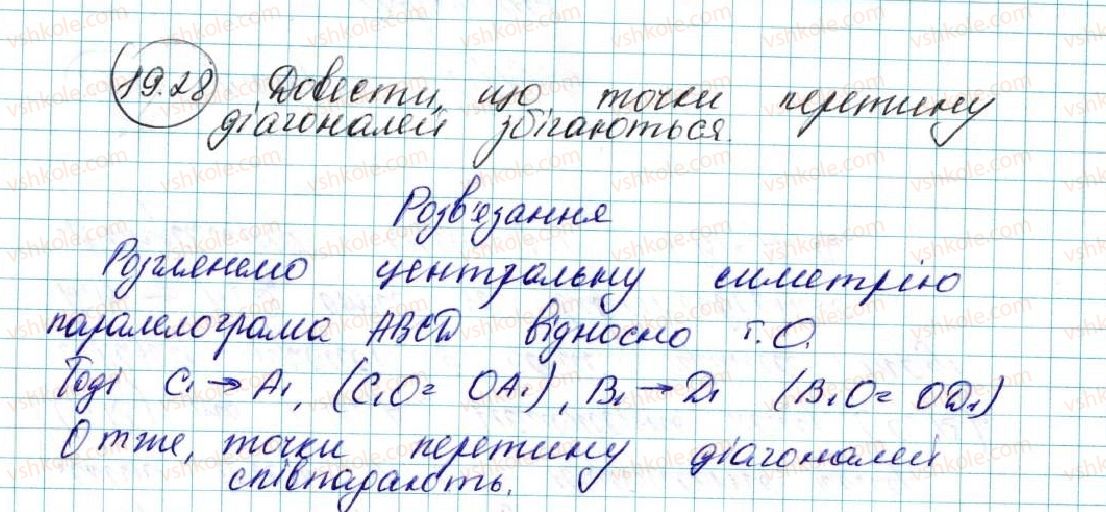 19.28 Довести, що точки перетину
діагоналей збігаються.
Розв'язання
Розглянемо центральну симетрію
паралелограма ABCD відносно т. О.
Тоді C₁ → A₁, (C₁O = OA₁), B₁ → D₁ (B₁O = OD₁)
Отже, точки перетину діагоналей
співпадають.